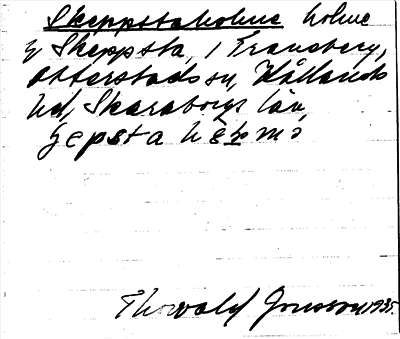 Skeppstaholme holme
y Skeppsta, i Transberg,
Otterstads sn, Kållands
hd, Skaraborgs län,
Thorvald Jonsson 1935.